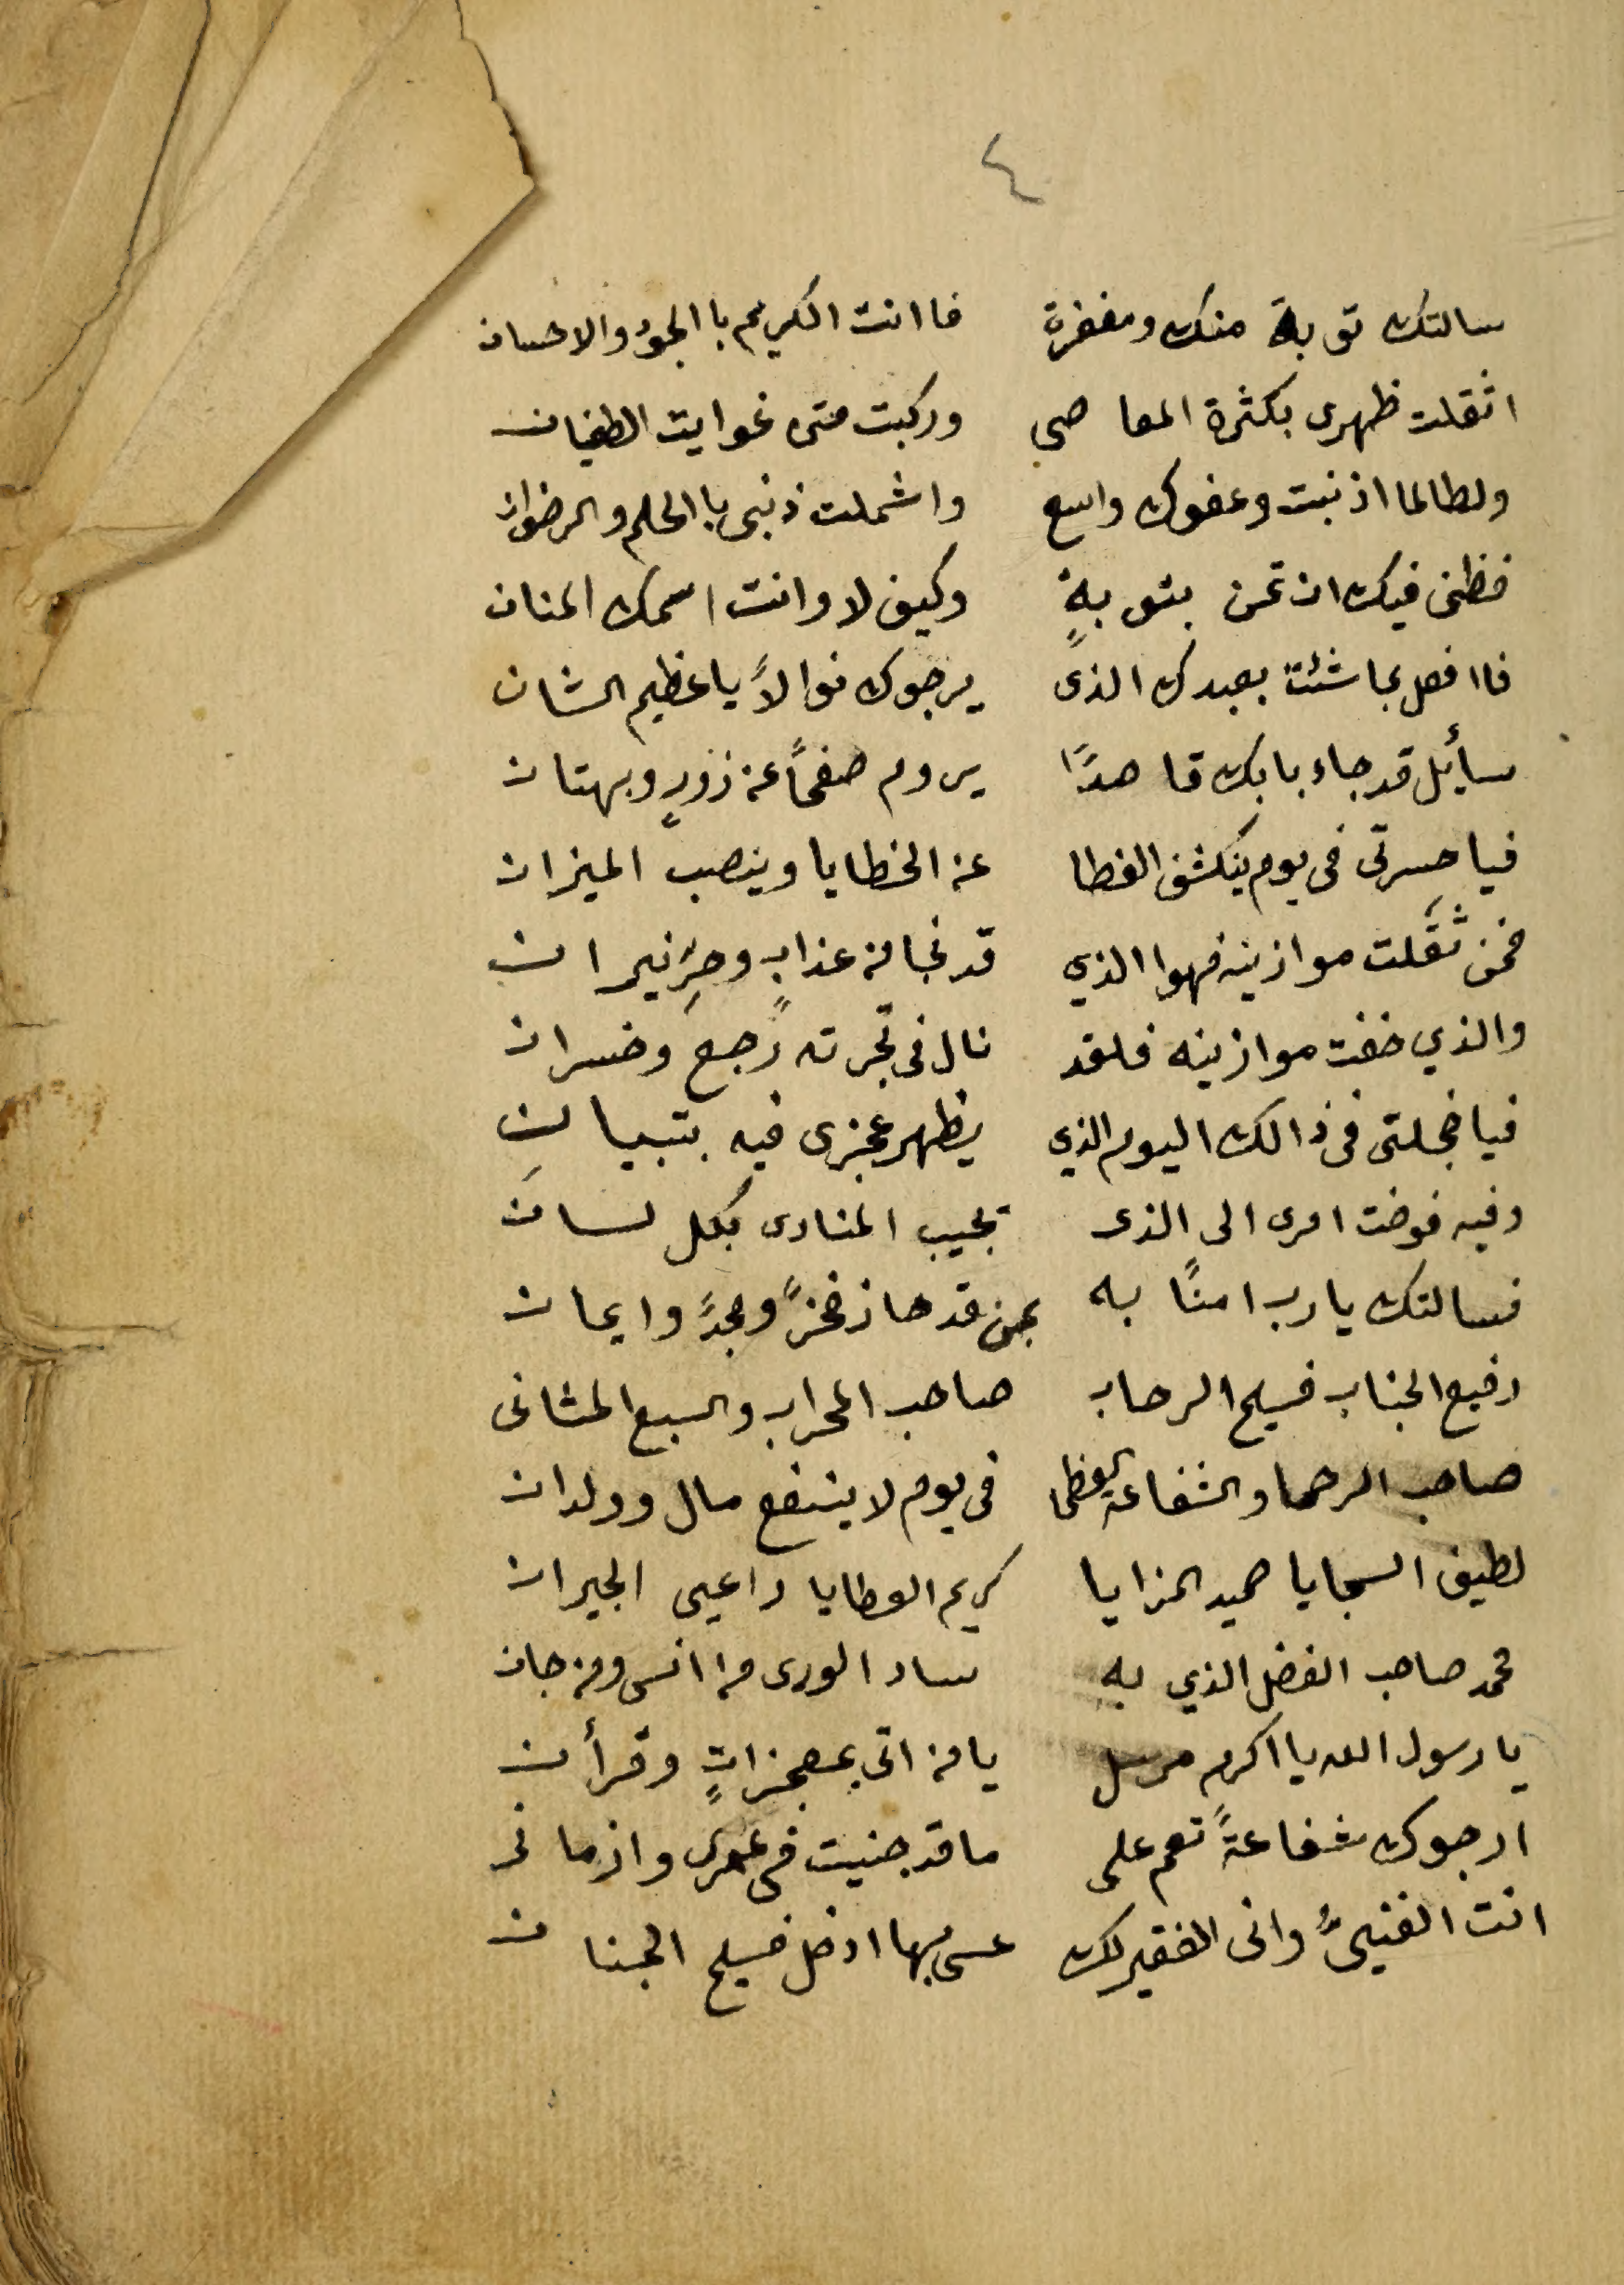 ٤
سالتك توبة منك ومغفرة فاانت الكريم باالجود والاحسان
اثقلت ظهرى بكثرة المعاصى وركبت متى غوايت الطغيان
ولطالما اذنبت وعفوك واسع واشملت ذنبى باالحلم والرضوان
فظنى فيك ان تمن بتوبةٍ وكيف لا وانت اسمك المنان
فاافعل بما شئت بعبدك الذى يرجوك نوالاً ياعظيم الشان
سأيل قد جاء بابك قاصدًا يروم صفحاً عن زورٍ وبهتان
فيا حسرتى فى يوم ينكشف الغطا عن الخطايا وينصب الميزان
فمن ثَقَلت موازينه فهوا الذي قد نجا من عذابٍ وحرِّ نيران
والذي خفت موازينه فلقد نال فى تجرته رجعَ وخسران
فيا خجلتى فى ذالك اليوم الذي يظهر عجزى فيه بتبيانِ
وفيه فوضت امرى الى الذى تجيب المنادى بكل لسان
فسالتك يارب امنًا به بمن قد حاز فخرً ومجدً وايمان
رفيع الجناب فسيح الرحاب صاحب المحراب والسبع المثانى
صاحب الرحما والشفاعة العظمى فى يوم لا ينفع مال وولدان
لطيف السجايا حميد المزايا كريم العطايا راعيى الجيران
محمد صاحب الفضل الذي به ساد الورى من انس ومن جان
يا رسول الله يا اكرم مرسل يا من اتى بمعجزاتٍ وقرأن
ارجوك شفاعةً تعم على ما قد جنيت فى عمرى وازمانى
انت الغنيىُّ وانى الفقير لك عسى بها ادخل فسيح الجنان